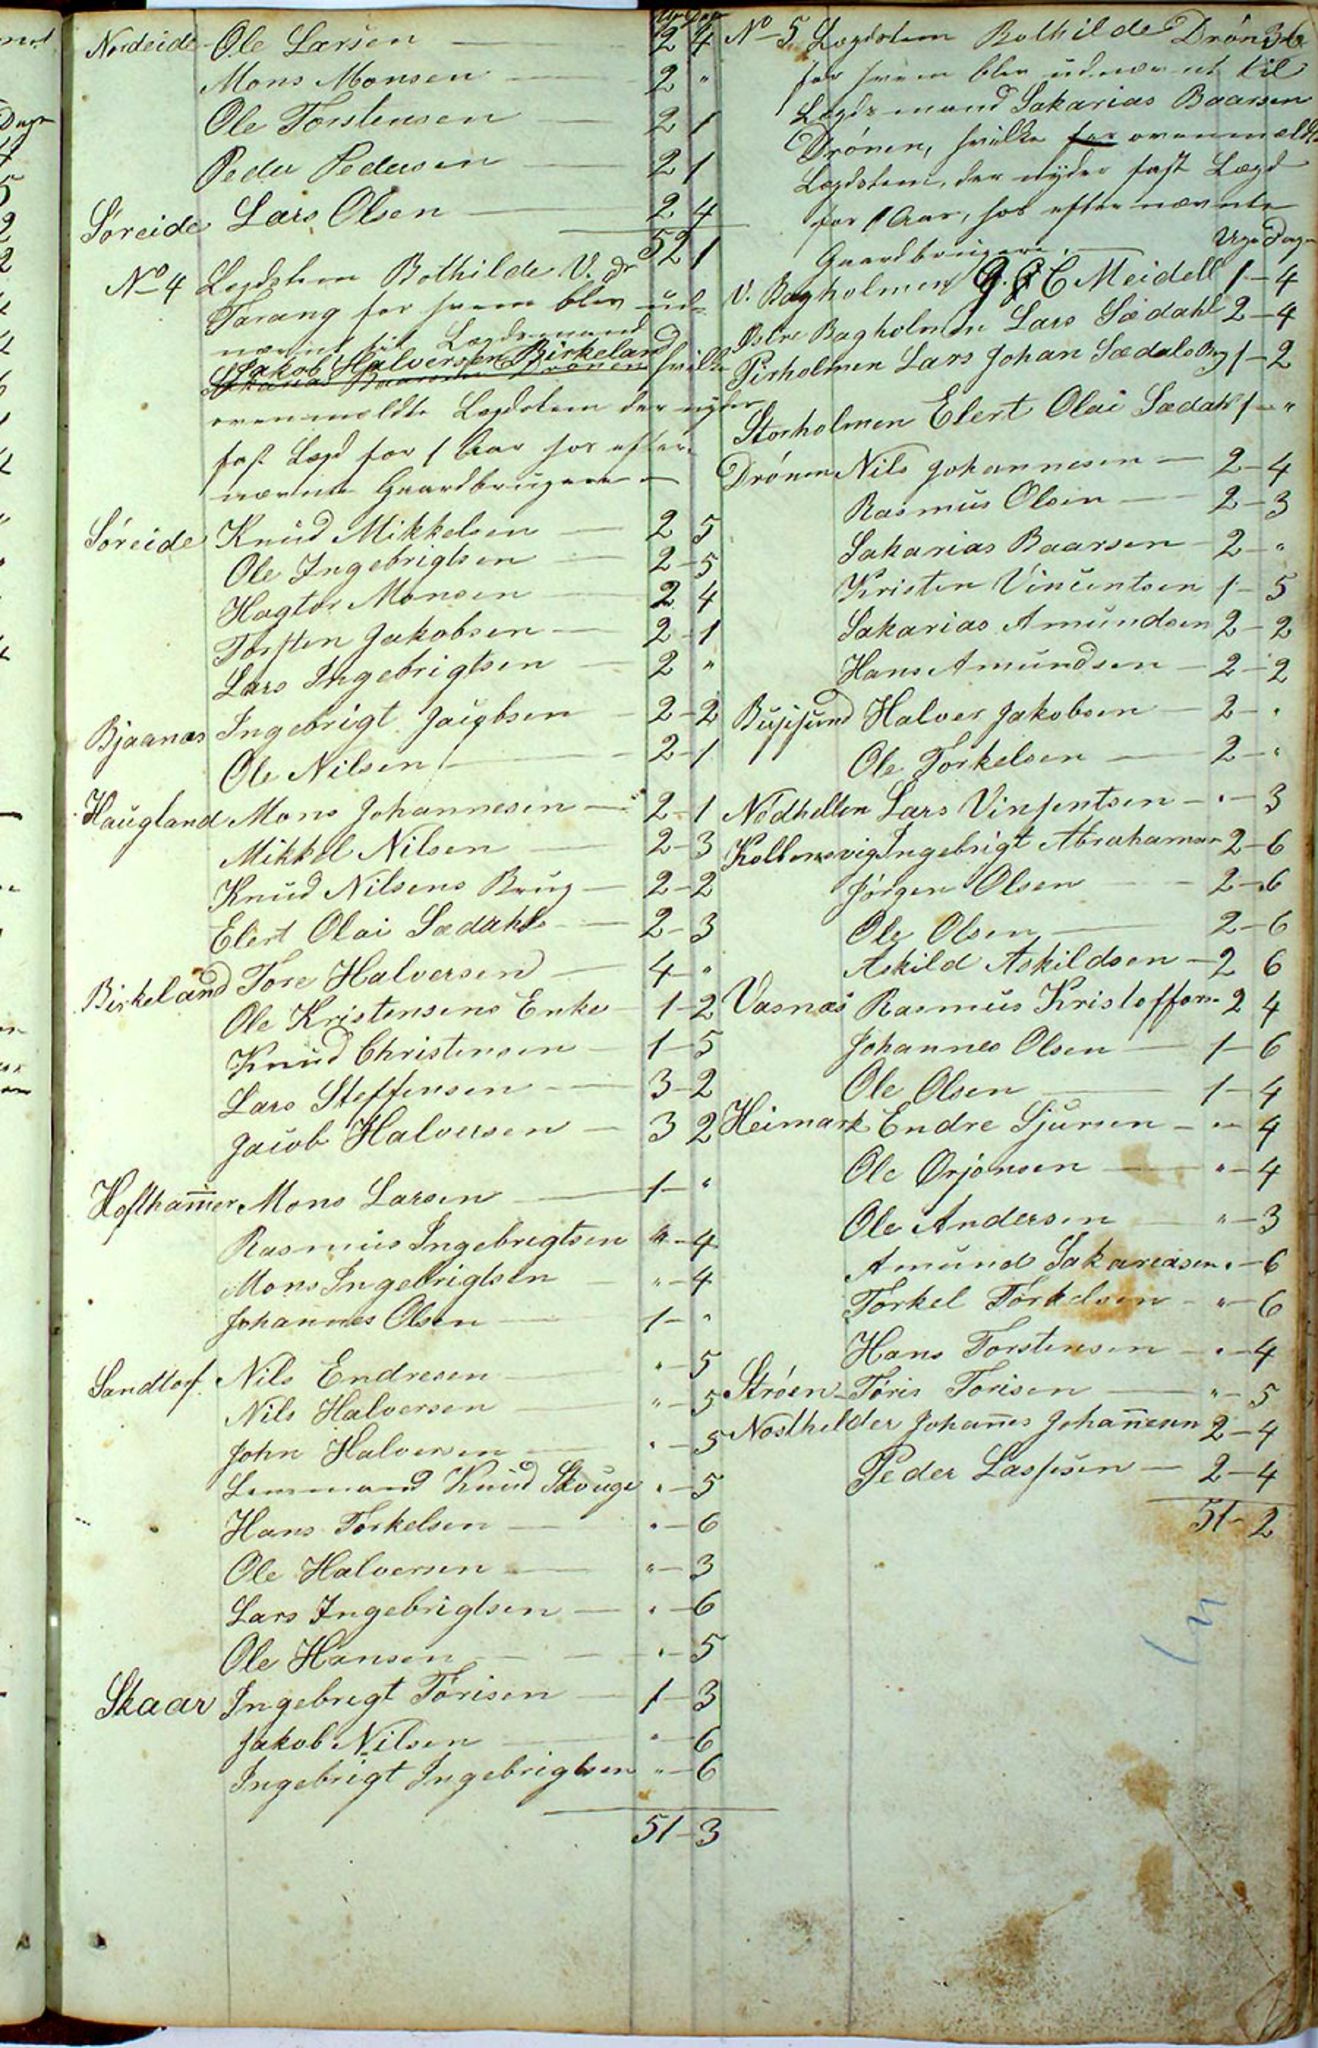 Uger Dage
Nordeide Ole Larsen 2 4
Mons Monsen 2 "
Ole Torstensen 2 1
Peder Pedersen 2 1
Søreide Lars Olsen 2 4
52 1
No 4 Lægdslem Bothilde V. dr
Tarang for hvem blev ud-
nævnt til Lægdsmand
Jakob Halversen Birkeland hvilke
Sakarias Baarsen Drønen
ovenmeldte Lægdslem der nyder
fast Lægd for 1 Aar hos efter-
nævnte Gaardbrugere
Søreide Knud Mikkelsen 2 5
Ole Ingebrigtsen 2-5
Hagtor Monsen 2 4
Torsten Jakobsen 2-1
Lars Ingebrigtsen 2 "
Bjaanæs Ingebrigt Jacobsen 2-2
Ole Nilsen 2-1
Haugland Mons Johannesen 2-1
Mikkel Nilsen 2-3
Knud Nilsens Brug 2-2
Elert Olai Sædahl 2-3
Birkeland Tore Halversen 4-"
Ole Kristensens Enke 1-2
Knud Christensen 1-5
Lars Steffensen 3-2
Jacob Halversen 3 2
Hofthamer Mons Larsen 1-"
Rasmus Ingebrigtsen "-4
Mons Ingebrigtsen "-4
Johannes Olsen 1-"
Sandtorf. Nils Endresen "-5
Nils Halversen "-5
John Halversen "-5
Lensmand Knud Skouge "-5
Hans Torkelsen "-6
Ole Halversen "-3
Lars Ingebrigtsen "-6
Ole Hansen "-5
Skaar Ingebrigt Torisen 1-3
Jakob Nilsen "-6
Ingebrigt Ingebrigtsen "-6
51-3
No 5 Lægdslem Bothilde Drønen
for hvem blev udnævnt til
Lægdsmand Sakarias Baarsen
Drønen, hvilke for ovenmeldte
Lægdslem, der nyder fast Lægd
for 1 Aar, hos efternævnte
Gaardbrugere. Uger Dage
V. Bagholmen G. C Meidell 1-4
Østre Bagholmen Lars Sædahl 2-4
Pirholmen Lars Johan Sædals Brg 1-2
Storholmen Elert Olai Sædahl 1-"
Drønen Nils Johannesen 2-4
Rasmus Olsen 2-3
Sakarias Baarsen 2-"
Kristen Vincentsen 1-5
Sakarias Amundsen 2-2
Hans Amundsen 2-2
Busesund Halver Jakobsen 2-"
Ole Torkelsen 2-"
Nødhellen Lars Vinsentsen "-3
Kolbensvig Ingebrigt Abrahamsen 2-6
Jørgen Olsen 2-6
Ole Olsen 2-6
Askild Askildsen 2 6
Vasnæs Rasmus Kristoffers 2 4
Johannes Olsen 1-6
Ole Olsen 1-4
Heimark Endre Sjursen "-4
Ole Ørjansen "-4
Ole Andersen "-3
Amund Sakariasen "-6
Torkel Torkelsen "-6
Hans Torstensen "-4
Strøen Toris Torisen "-5
Nosthelder Johanes Johanesen 2-4
Peder Lassesen 2-4
51-2